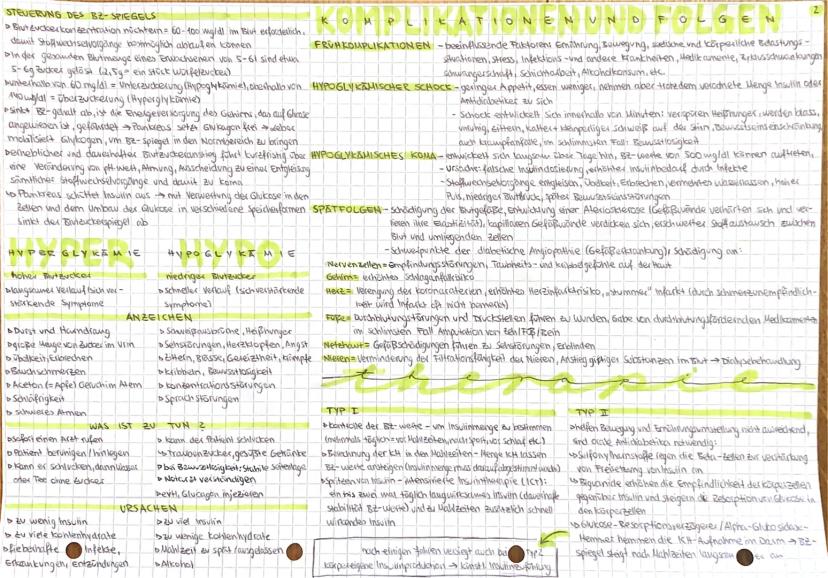 2
STEUERUNG DES BZ-SPIEGELS
Blutzuckerkonzentration nüchtern = 60-100 mg/dl im Blut erforderlich,
damit Stoffwechselvorgänge bestmöglich ablaufen können
In der gesamten Blutmenge eines Erwachsenen von 5-6l sind etwa
5-6g Zucker gelöst (2,5g = ein Stück Würfelzucker)
unterhalb von 60 mg/dl = Unterzuckerung (Hypoglykämie), oberhalb von
140 mg/dl = Überzuckerung (Hyperglykämie)
sinkt BZ-Gehalt ab, ist die Energieversorgung des Gehirns, das auf Glukose
angewiesen ist, gefährdet → Pankreas setzt Glukagon frei → Leber
mobilisiert Glykogen, um BZ-Spiegel in den Normbereich zu bringen
erheblicher und dauerhafter Blutzuckeranstieg führt kurzfristig über
eine Veränderung von pH-Wert, Atmung, Ausscheidung zu einer Entgleisung
sämtlicher Stoffwechselvorgänge und damit zu Koma
↳ Pankreas schüttet Insulin aus → mit Verwertung der Glukose in den
Zellen und dem Umbau der Glukose in verschiedene Speicherformen
sinkt der Blutzuckerspiegel ab
HYPERGLYKÄMIE
hoher Blutzucker
langsamer Verlauf (sich verstärkende Symptome)
HYPOGLYKÄMIE
niedriger Blutzucker
schneller Verlauf (sich verstärkende
symptome)
ANZEICHEN
Durst und Harndrang
große Menge von Zucker im Urin
Übelkeit, Erbrechen
Bauchschmerzen
Aceton (=Apfel) Geruch im Atem
Schläfrigkeit
schweres Atmen
Schweißausbrüche, Heißhunger
Sehstörungen, Herzklopfen, Angst
Zittern, Blässe, Gereiztheit, Krämpfe
Kribbeln, Bewusstlosigkeit
Konzentrationsstörungen
Sprachstörungen
WAS IST ZU TUN?
sofort einen Arzt rufen
Patient beruhigen/hinlegen
kann er schlucken, dann Wasser
oder Tee ohne Zucker
kann der Patient schlucken
↳ Traubenzucker, gesüßte Getränke
bei Bewusstlosigkeit: Stabile Seitenlage
Notarzt verständigen
evtl. Glucagon injezieren
URSACHEN
zu wenig Insulin
zu viele Kohlenhydrate
fieberhafte Infekte,
Erkrankungen, Entzündungen
zu viel Insulin
zu wenige Kohlenhydrate
Mahlzeit zu spät/ausgelassen
Alkohol
KOMPLIKATIONEN UND FOLGEN
FRÜHKOMPLIKATIONEN - beeinflussende Faktoren Ernährung, Bewegung, seelische und körperliche Belastungs-
situationen, Stress, Infektions- und andere Krankheiten, Medikamente, Zyklusschwankungen
Schwangerschaft, Schichtarbeit, Alkoholkonsum, etc.
HYPOGLYKÄMISCHER SCHOCK - geringer Appetit, essen weniger, nehmen aber trotzdem verordnete Menge Insulin oder
Antidiabetika zu sich
- Schock entwickelt sich innerhalb von Minuten: verspüren Heißhunger, werden blass,
unruhig, zittern, kalter kleinperliger Schweiß auf der Stirn, Bewusstseinseinschränkung,
auch Krampfanfälle, im schlimmsten Fall: Bewusstlosigkeit
HYPOGLYKÄMISCHES KOMA - entwickelt sich langsamer über Tage hin, BZ-Werte von 300 mg/dl können auftreten,
- Ursache: falsche Insulindosierung, erhöhter Insulinbedarf durch Infekte
- Stoffwechselvorgänge entgleisen, Übelkeit, Erbrechen, vermehrtes Wasserlassen, hoher
Puls, niedriger Blutdruck, später Bewusstseinsstörungen
SPÄTFOLGEN - Schädigung der Blutgefäße, Entwicklung einer Aterosklerose (Gefäßwände verhärten sich und ver-
lieren ihre Elastizität), kapillaren Gefäßwände verdicken sich, erschwerter Stoffaustausch zwischen
Blut und umliegenden Zellen
- Schwerpunkte der diabetische Angiopathie (Gefäßerkrankung), Schädigung an:
Nervenzellen = Empfindungsstörungen, Taubheits- und Kribbelgefühle auf der Haut
Gehirn = erhöhtes Schlaganfallrisiko
Herz = Verengung der Koronararterien, erhöhtes Herzinfarktrisiko, „stummer" Infarkt (durch Schmerzunempfindlich-
keit wird Infarkt oft nicht bemerkt)
Füße = Durchblutungsstörungen und Druckstellen führen zu Wunden, Gabe von durchblutungsfördernden Medikamenten
im schlimmsten Fall Amputation von Zeh/Fuß/Bein
Netzhaut = Gefäßschädigungen führen zu Sehstörungen, Erblinden
Nieren = Verminderung der Filtrationsfähigkeit der Nieren, Anstieg giftiger Substanzen im Blut → Dialysebehandlung
therapie
TYP I
Kontrolle der BZ-Werte - um Insulinmenge zu bestimmen
(mehrmals täglich: vor Mahlzeiten, nach Sport, vor Schlaf etc.)
Berechnung der KH in den Mahlzeiten - Menge KH lassen
BZ-Werte ansteigen (Insulinmenge muss darauf abgestimmt werden)
Spritzen von Insulin - intensivierte Insulintherapie (ICT):
ein bis zwei mal täglich langwirksames Insulin (dauerhafte
Stabilität BZ-Werte) und zu Mahlzeiten zusätzlich schnell
wirkendes Insulin
TYP II
helfen Bewegung und Ernährungsumstellung nicht ausreichend,
sind orale Antidiabetika notwendig:
Sulfonylharnstoffe regen die Beta-Zellen zur Verstärkung
von Freisetzung von Insulin an
Biguanide erhöhen die Empfindlichkeit der Körperzellen
gegenüber Insulin und steigern die Resorption von Glukose in
den Körperzellen
Glukose-Resorptionsverzögerer/Alpha-Glukosidase-
Hemmer hemmen die KH-Aufnahme im Darm → BZ-
Spiegel steigt nach Mahlzeiten langsam an
nach einigen Jahren versiegt auch bei Typ 2
körpereigene Insulinproduktion → künstl. Insulinzuführung